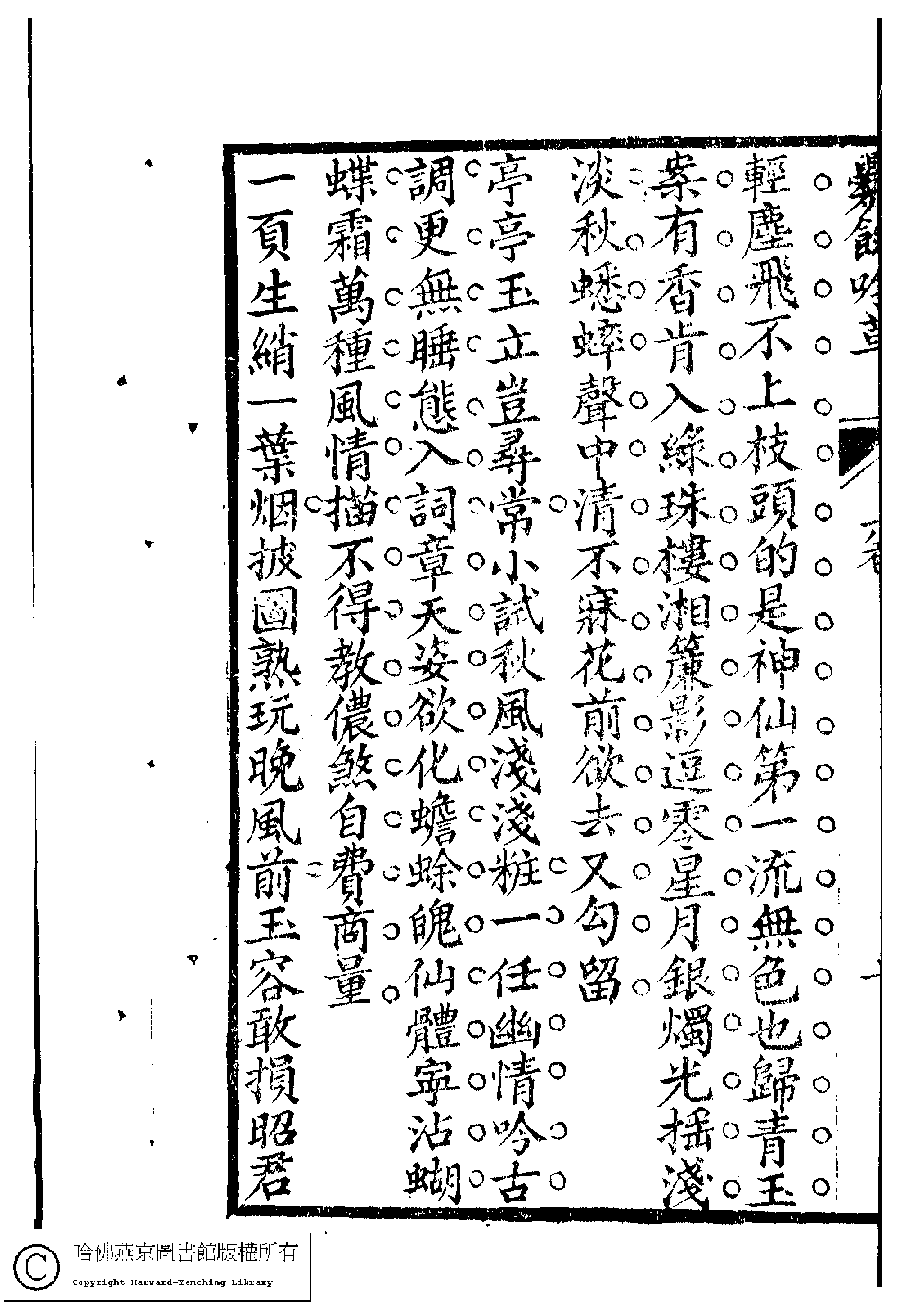 爨餘吟草
輕塵飛不上枝頭的是神仙第一流無色也歸青玉
案有香肯入綠珠樓湘簾影逗零星月銀燭光搖淺
淡秋蟋蟀聲中清不寐花前欲去又勾留
亭亭玉立豈尋常小試秋風淺淺粧一任幽情吟古
調更無睡態入詞章天姿欲化蟾蜍魄仙體寧沾蝴
蝶霜萬種風情描不得教儂煞自費商量
一頁生綃一葉烟披圖熟玩晚風前玉容敢損昭君
哈佛燕京圖書館版權所有
Copyright Harvard-Yenching Library